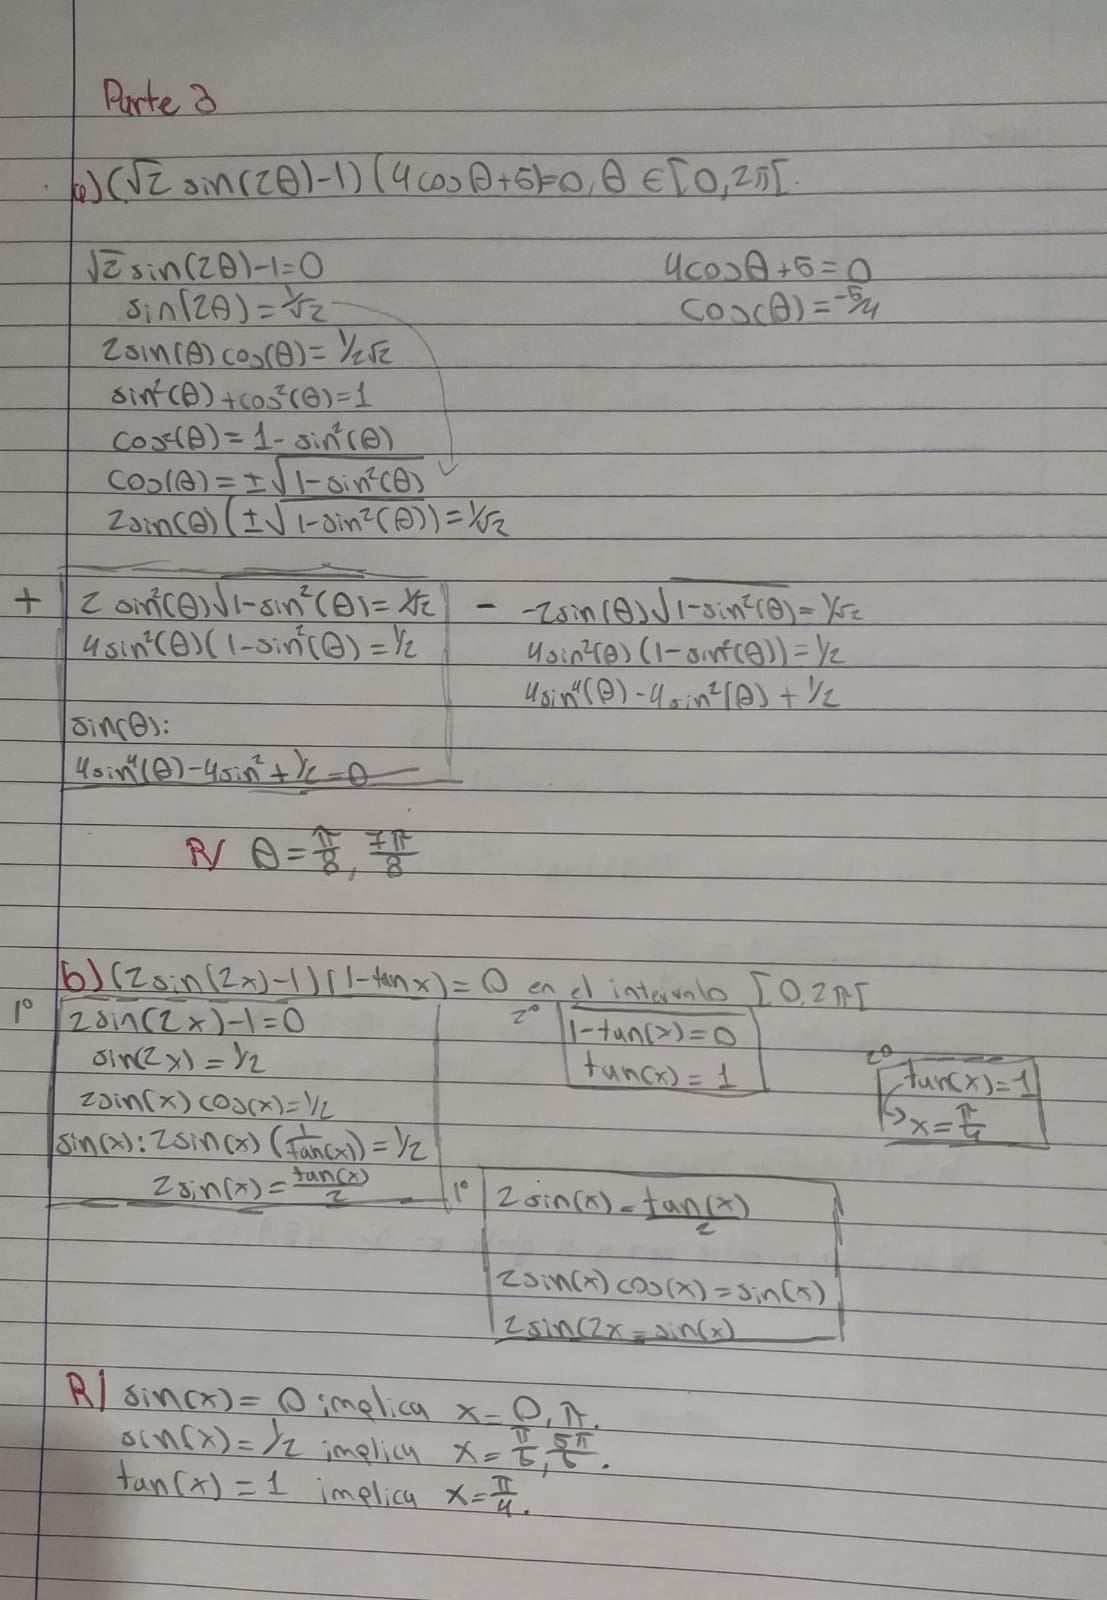 Parte 3
a) (√2 sin(2θ)-1) (4cosθ+5)=0, θ ∈ [0,2π[.
√2 sin(2θ)-1=0
sin(2θ)=1/√2
2sin(θ)cos(θ)=1/2√2
sin²(θ)+cos²(θ)=1
cos²(θ)=1-sin²(θ)
cos(θ)=±√1-sin²(θ)
2sin(θ)(±√1-sin²(θ))=1/√2
4cosθ+5=0
cos(θ)=-5/4
+ 2sin²(θ)√1-sin²(θ)=1/√2
4sin²(θ)(1-sin²(θ)=1/2
sin(θ):
4sin⁴(θ)-4sin²+1/2=0
- -2sin(θ)√1-sin²(θ)=1/√2
4sin²(θ)(1-sin²(θ))=1/2
4sin⁴(θ)-4sin²(θ)+1/2
R/ θ=π/8, 7π/8
b) (2sin(2x)-1)(1-tanx)=0 en el intervalo [0,2π[
1° 2sin(2x)-1=0
sin(2x)=1/2
2sin(x)cos(x)=1/2
sin(x): 2sin(x)(1/tan(x))=1/2
2sin(x)=tan(x)/2
2° 1-tan(x)=0
tan(x)=1
2° tan(x)=1
↳x=π/4
1° 2sin(x)=tan(x)/2
2sin(x)cos(x)=sin(x)
2sin(2x=sin(x)
R/ sin(x)=0 implica x=0,π.
sin(x)=1/2 implica x=π/6, 5π/6.
tan(x)=1 implica x=π/4.